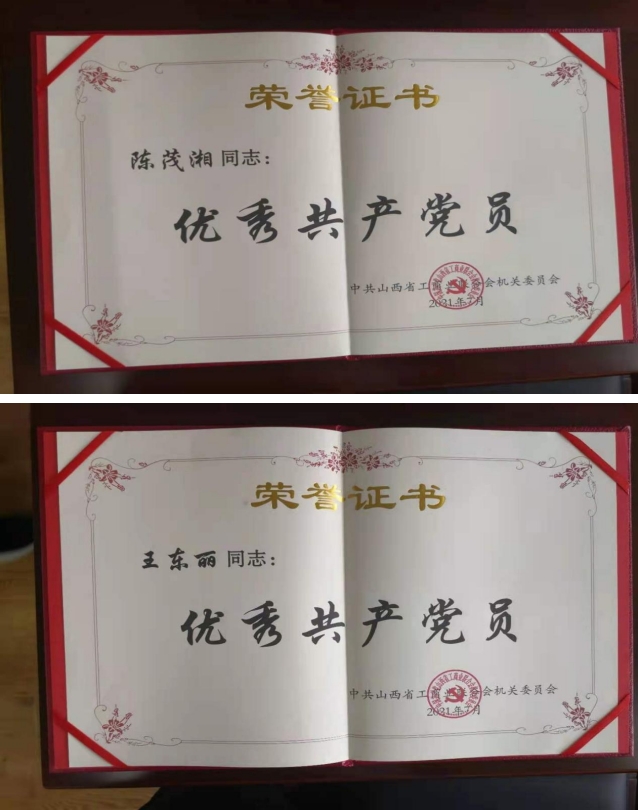 荣誉证书
陈茂湘同志：
优秀共产党员
中共山西省工商业联合会机关委员会
2021年7月
荣誉证书
王东丽同志：
优秀共产党员
中共山西省工商业联合会机关委员会
2021年7月